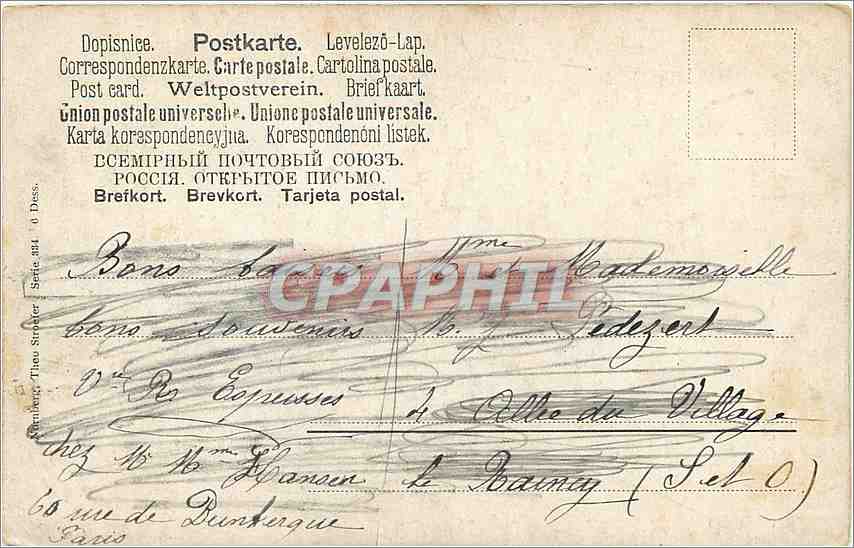 Dopisnice. Postkarte. Levelező-Lap.
Correspondenzkarte. Carte postale. Cartolina postale.
Post card. Weltpostverein. Briefkaart.
Union postale universelle. Unione postale universale.
Karta korespondencyjna. Korespondenční listek.
ВСЕМІРНЫЙ ПОЧТОВЫЙ СОЮЗЪ.
РОССІЯ. ОТКРЫТОЕ ПИСЬМО.
Brefkort. Brevkort. Tarjeta postal.
Nürnberg, Theo Stroefer, Serie 334 6 Dess.
Bons baisers
bons souvenirs
Vve
chez M Mme Hansen
60 rue de Dunkerque
Paris
Mme et Mademoiselle
Pedezert
4 Allée du Village
le Raincy (S et O)
CPAPHIL